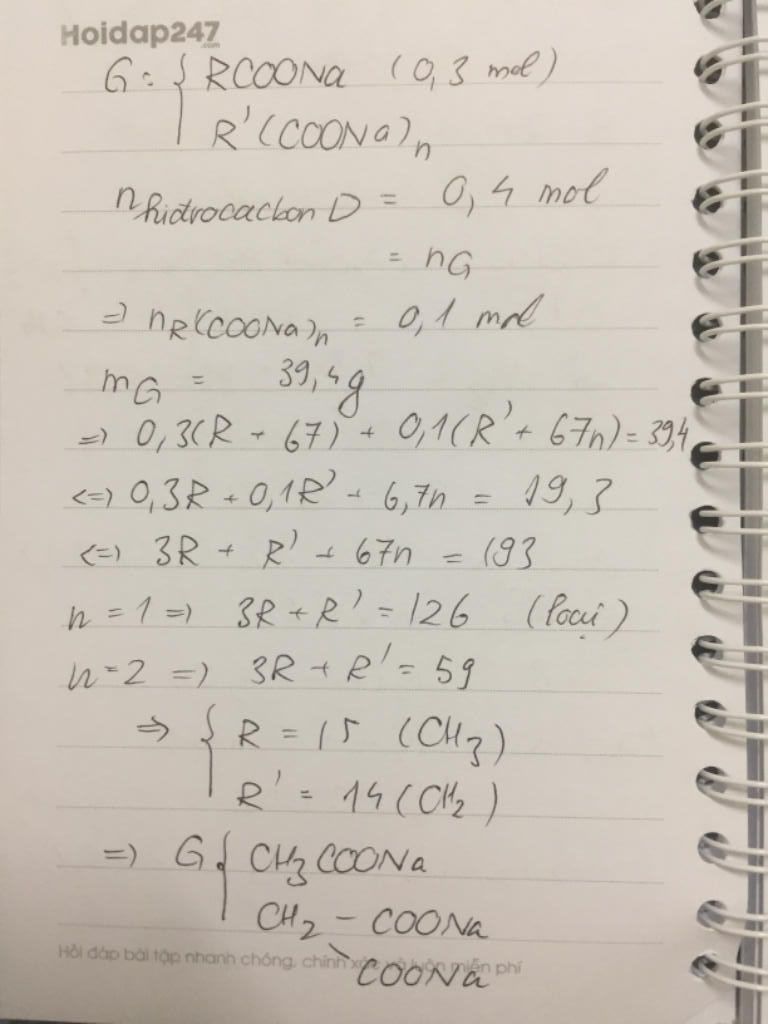 Hoidap247
.com
G: { RCOONa (0,3 mol)
R'(COONa)n
n hidrocacbon D = 0,4 mol
= nG
=> nR'(COONa)n = 0,1 mol
mG = 39,4g
=> 0,3(R + 67) + 0,1(R' + 67n) = 39,4
<=> 0,3R + 0,1R' + 6,7n = 19,3
<=> 3R + R' + 67n = 193
n = 1 => 3R + R' = 126 (loại)
n = 2 => 3R + R' = 59
=> { R = 15 (CH3)
R' = 14 (CH2)
=> G { CH3COONa
CH2 - COONa
Hỏi đáp bài tập nhanh chóng, chính xác và luôn miễn phí
\ COONa